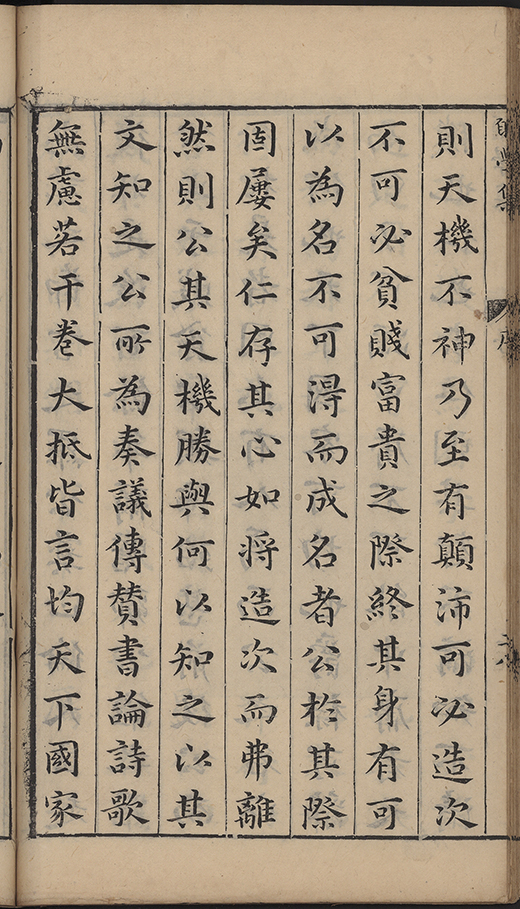 則天機不神乃至有顛沛可必造次
不可必貧賤富貴之際終其身有可
以為名不可得而成名者公於其際
固屢矣仁存其心如將造次而弗離
然則公其天機勝與何以知之以其
文知之公所為奏議傳贊書論詩歌
無慮若干卷大抵皆言均天下國家